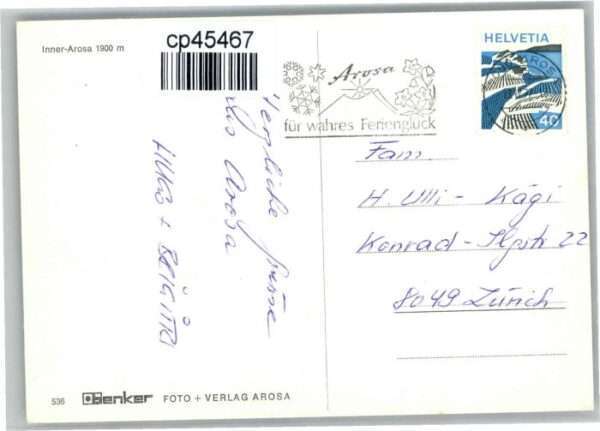 Inner-Arosa 1900 m
cp45467
HELVETIA
40
Arosa
für wahres Ferienglück
Herzliche Grüsse
aus Arosa
Fam.
H. Ulli - Kägi
Konrad-Ilgstr 22
8049 Zürich
536 Benker FOTO + VERLAG AROSA